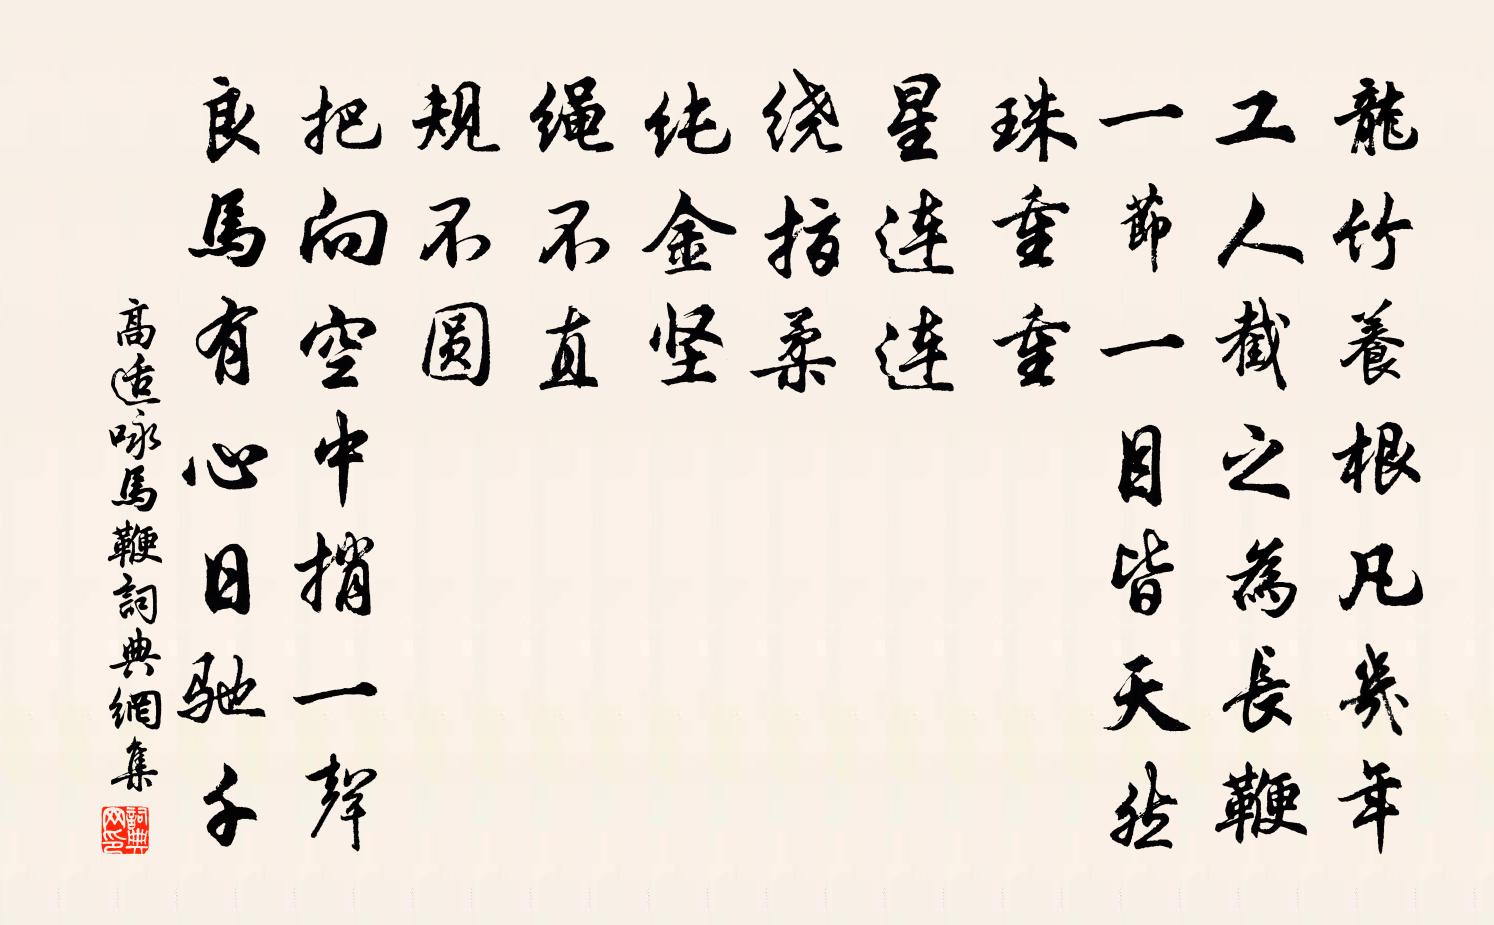 龍竹養根凡幾年
工人截之為長鞭
一節一目皆天然
珠重重
星连连
绕指柔
纯金坚
绳不直
规不圆
把向空中捎一聲
良馬有心日驰千
高适咏馬鞭詞典網集
詞典网印